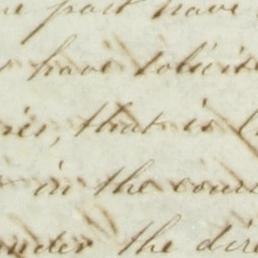 part have
have solicite
that is
in the cour
under the dire